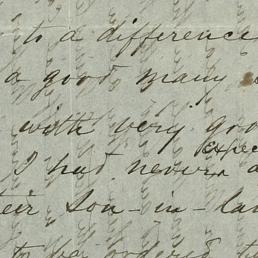 to a difference
a good many
with very goo
expec
I had never a
eir Son-in-law
to be ordered t